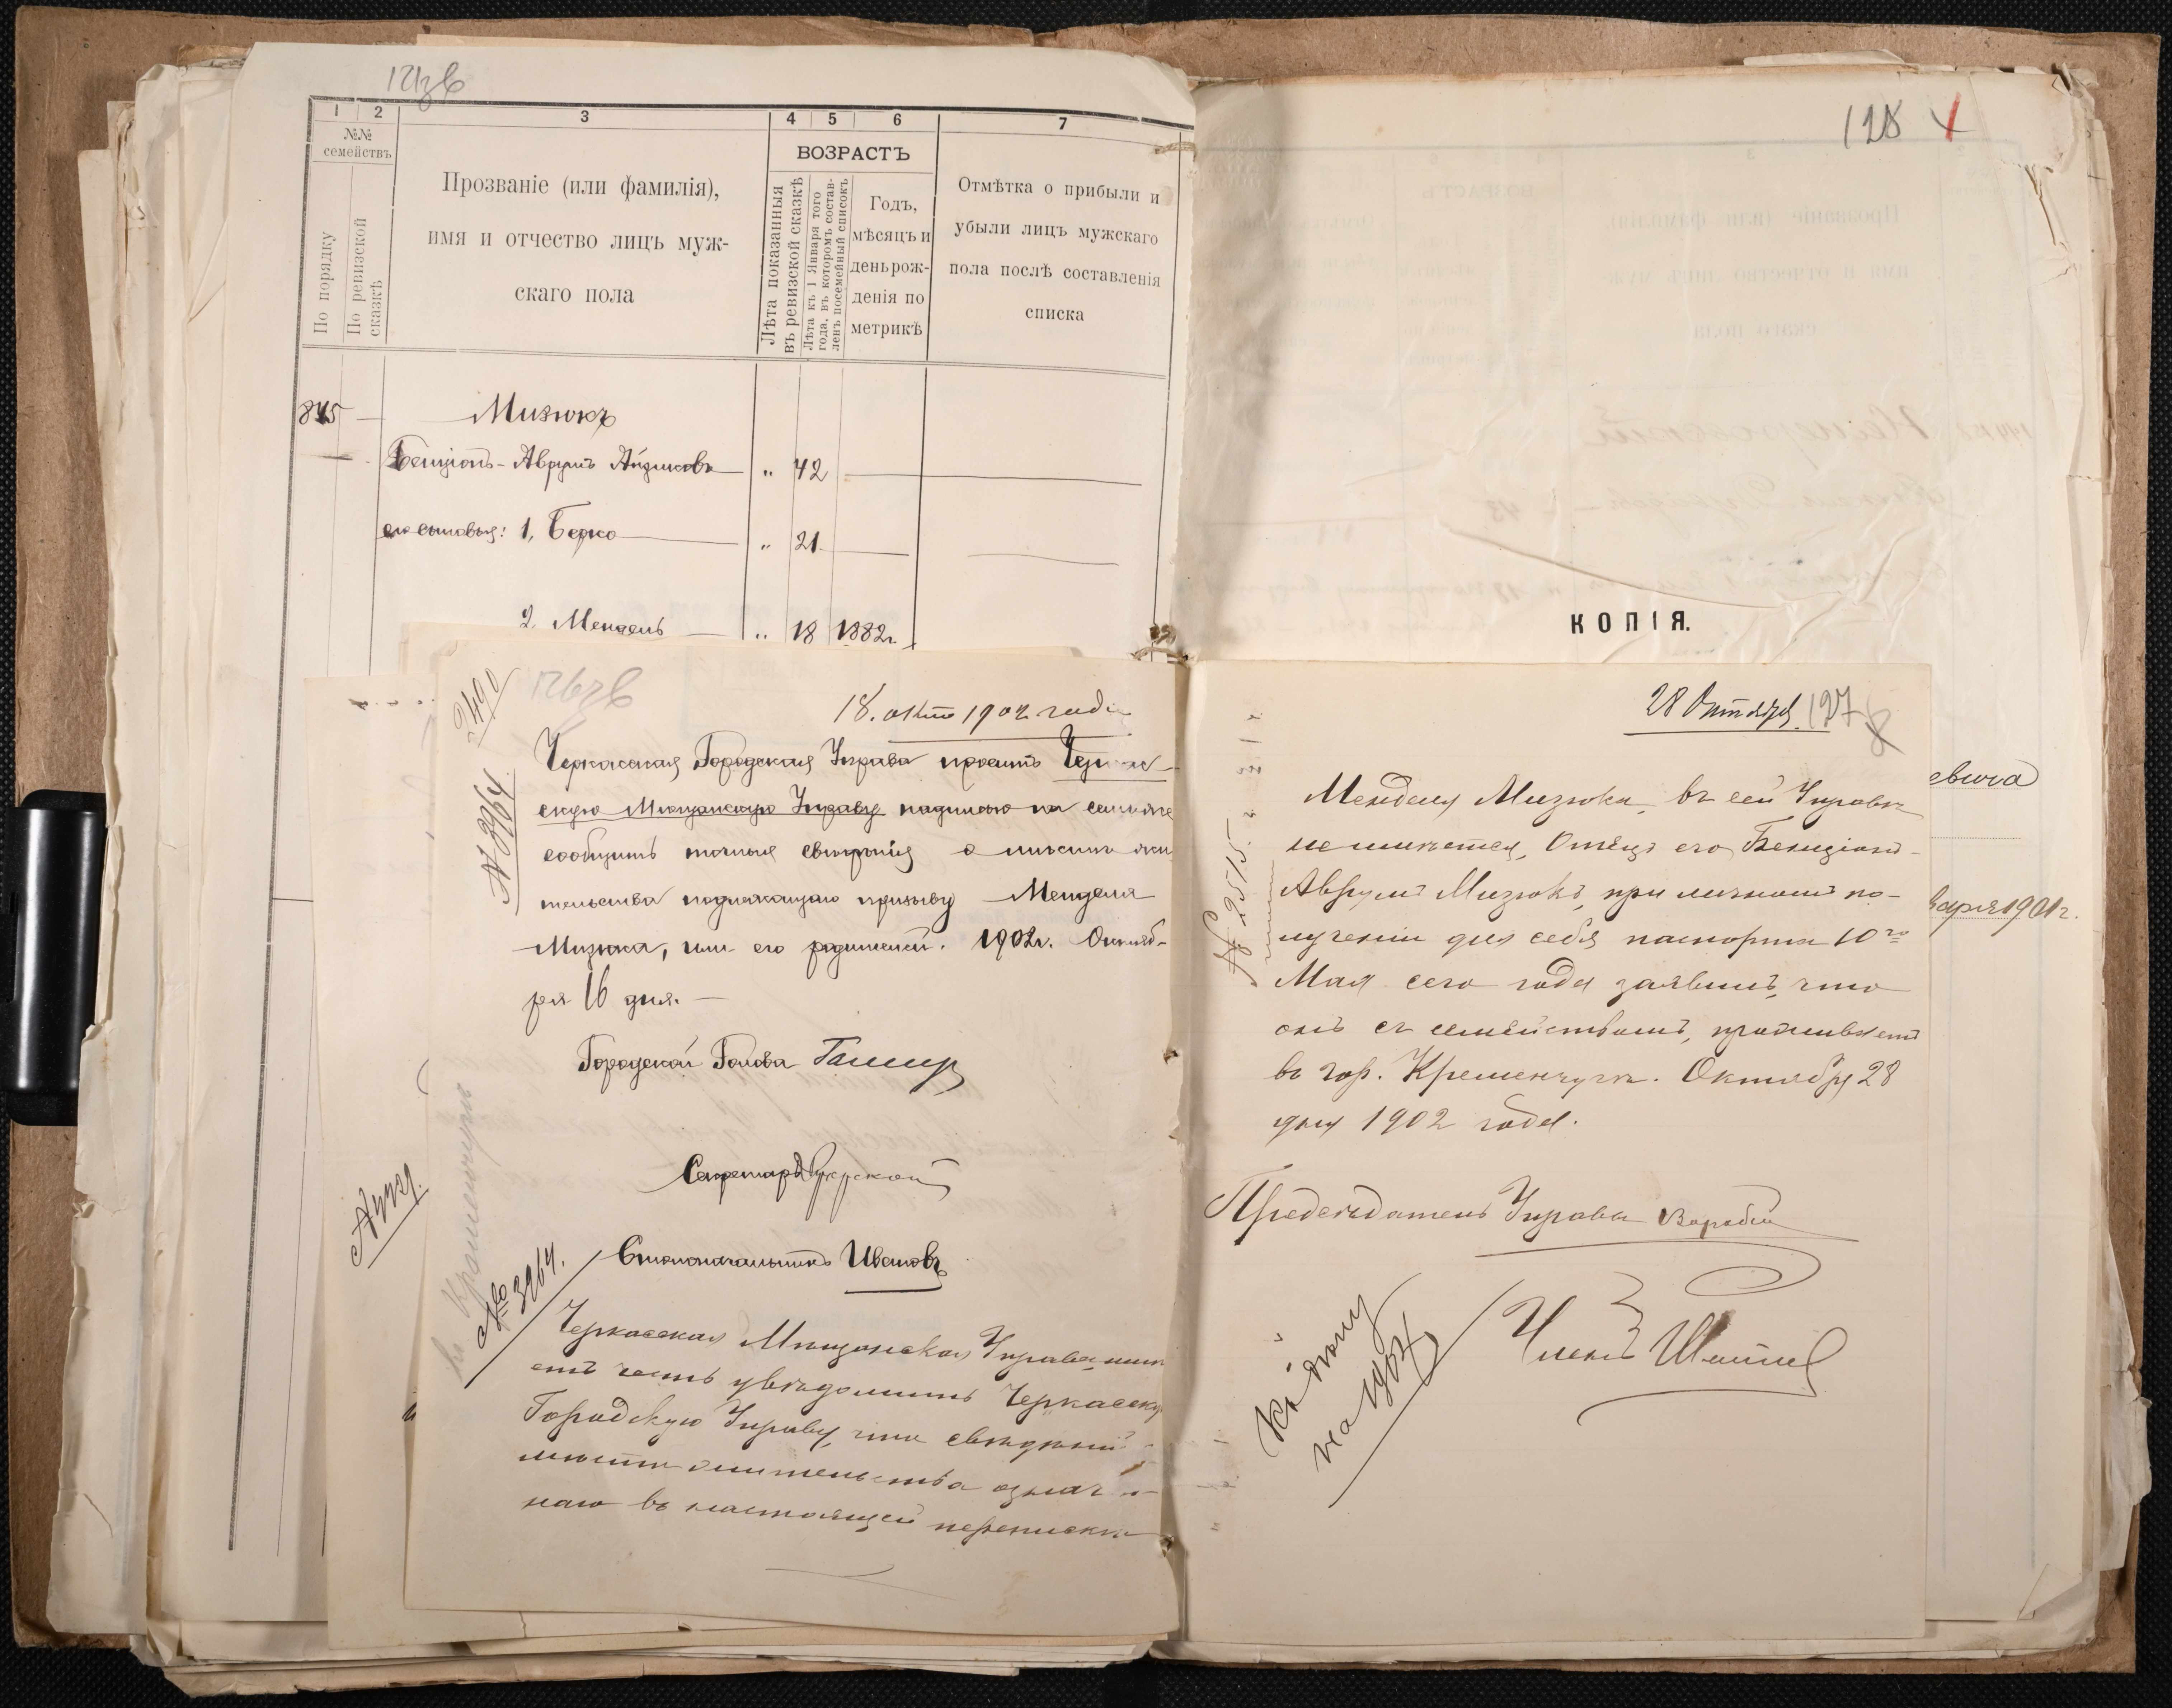 1 2 3 4 5 6 7
№№ семействъ
По порядку
По ревизской сказкѣ
Прозваніе (или фамилія),
имя и отчество лицъ муж-
скаго пола
ВОЗРАСТЪ
Лѣта показанныя въ ревизской сказкѣ
Лѣта къ 1 Января того года, въ которомъ состав-ленъ посемейный списокъ
Годъ,
мѣсяцъ и
день рож-
денія по
метрикѣ
Отмѣтка о прибыли и
убыли лицъ мужскаго
пола послѣ составленія
списка
845 Мизюкъ
Бенціонъ-Аврумъ Айзиковъ „ 42
его сыновья: 1, Берко „ 21
2, Мендель „ 18 1882г.
2490
№ 3964
18. окт 1902 года
Черкасская Городская Управа проситъ Черкас-
скую Мѣщанскую Управу надписью на семъ же
сообщить точныя свѣдѣнія о мѣстѣ жи
тельства подлежащаго призыву Менделя
Мизюка, или его родителей. 1902г. Октяб-
ря 16 дня.
Городской Голова
Секретарь
Столоначальникъ Ивановъ
№ 3964.
Черкасская Мѣщанская Управа имѣ
етъ честь увѣдомить Черкасску
Городскую Управу, что свѣдѣній
мѣстѣ жительства означ
наго въ настоящей перепискѣ
128
КОПІЯ.
28 Октября 127
№ 2515.
Менделя Мизюка, въ сей Управѣ
не имѣется, Отецъ его Бенціонъ-
Аврумъ Мизюкъ, при личномъ по-
лученіи для себя паспорта 10го
Мая сего года заявилъ, что
онъ съ семействомъ, проживаетъ
въ гор. Кременчугѣ. Октября 28
дня 1902 года.
Предсѣдатель Управы
Членъ
Къ дѣлу
евича
варя 1901г.